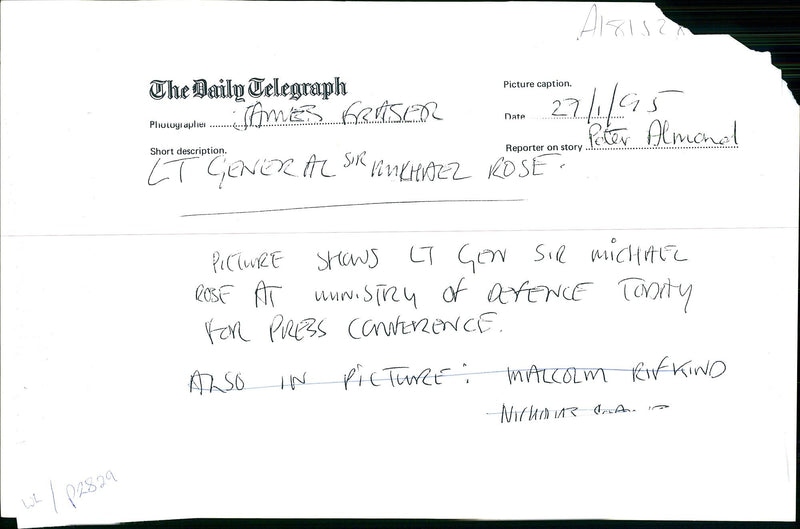 A181528
The Daily Telegraph
Picture caption.
Photographer JAMES FRASER
Date 27/1/95
Short description.
Reporter on story Peter Almond
LT GENERAL SIR MICHAEL ROSE.
PICTURE SHOWS LT GEN SIR MICHAEL
ROSE AT MINISTRY OF DEFENCE TODAY
FOR PRESS CONFERENCE.
ALSO IN PICTURE: MALCOLM RIFKIND
NICHOLAS
WL/P2829